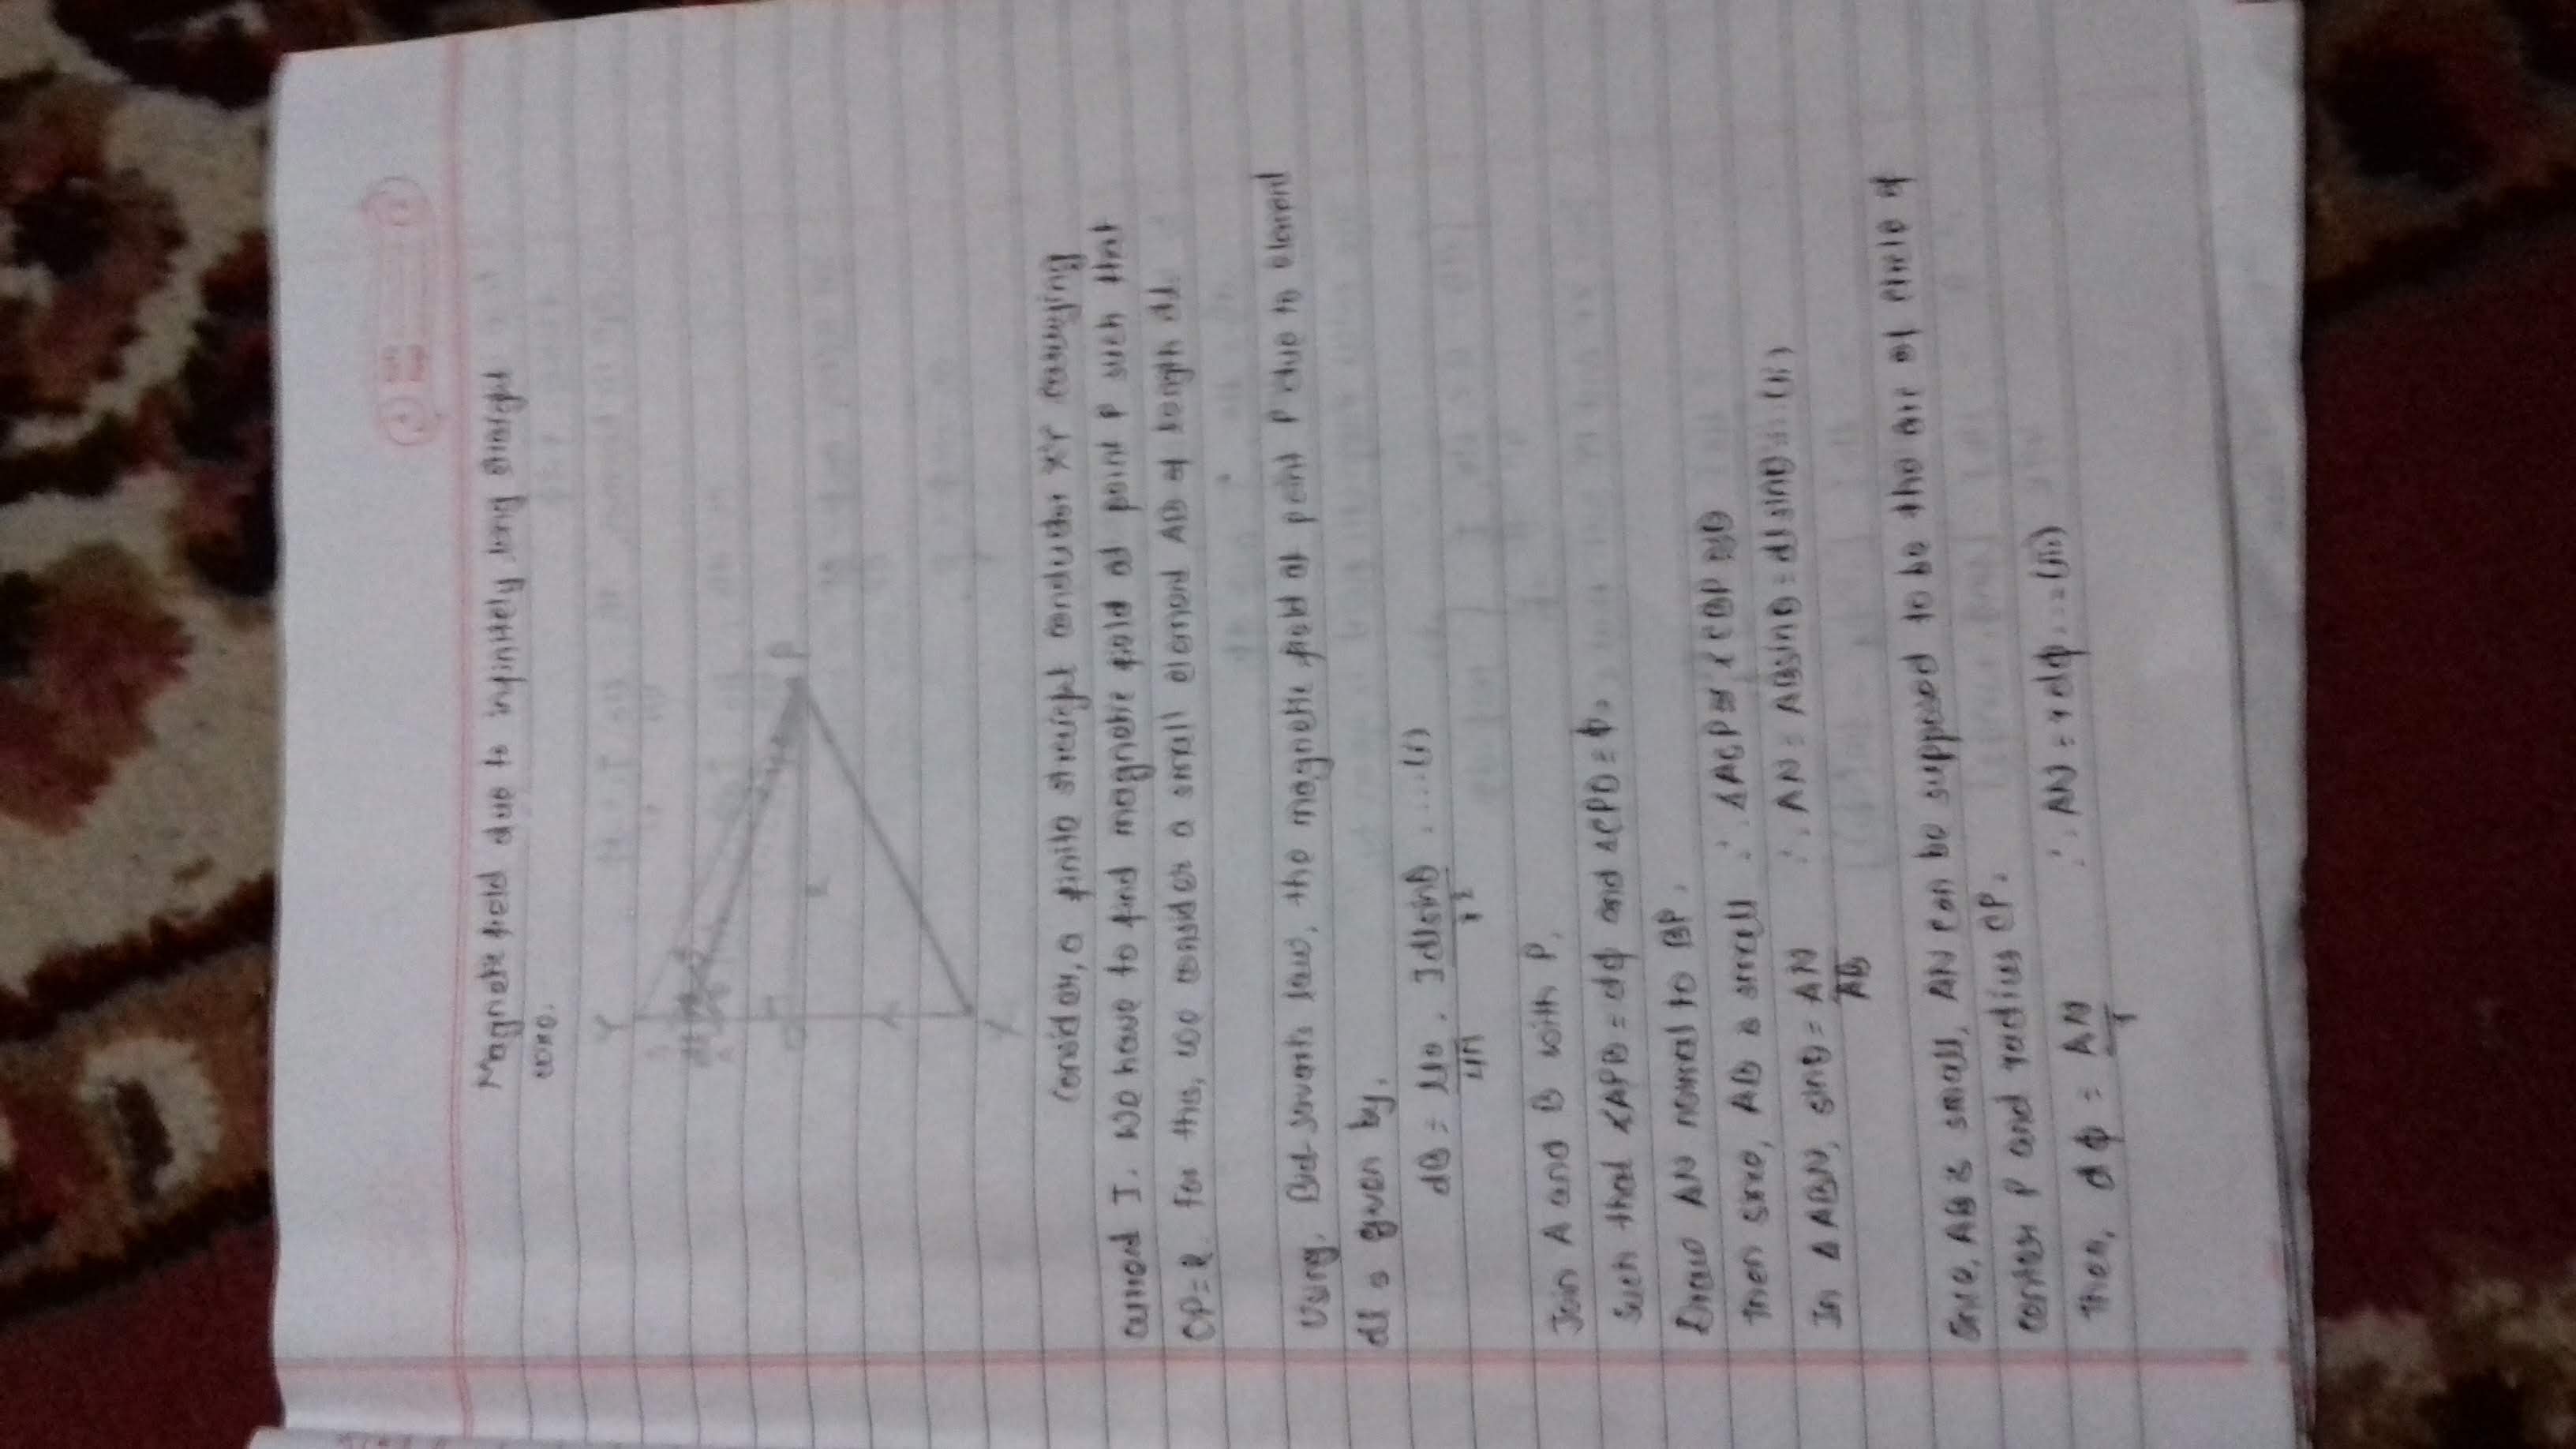 Magnetic field due to infinitely long straight
wire.
Y
B
dl
A
C
R
P
X
Consider, a finite straight conductor XY carrying
current I. We have to find magnetic field at point P such that
CP=R. For this, we consider a small element AB of length dl.
Using, Biot-Savart's law, the magnetic field at point P due to element
dl is given by,
dB = μ0/4π . Idlsinθ/r² ....(i)
Join A and B with P,
Such that ∠APB = dφ and ∠CPB = φ.
Draw AN normal to BP.
then since, AB is small ∴ ∠ACP ≅ ∠CBP ≅ θ
In ΔABN, sinθ = AN/AB ∴ AN = ABsinθ = dlsinθ ...(ii)
Since, AB is small, AN can be supposed to be the arc of circle of
center P and radius CP.
Then, dφ = AN/r ∴ AN = rdφ ...(iii)